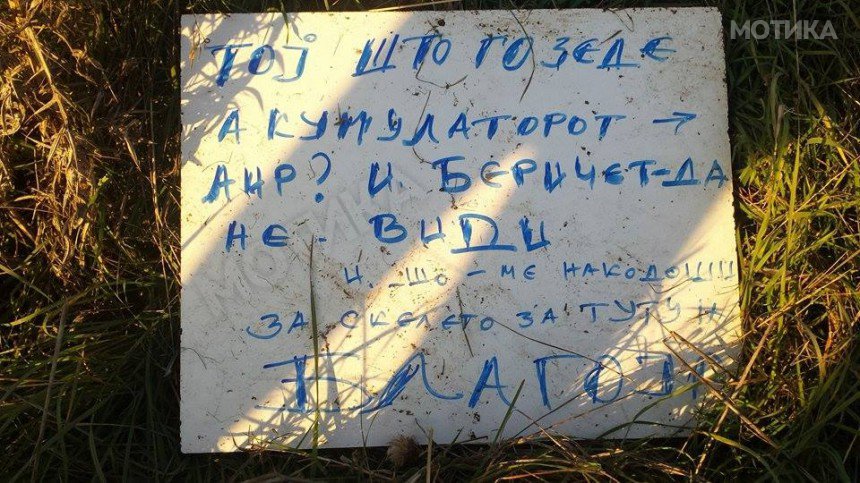 МОТИКА
ТОЈ ШТО ГО ЗЄДЕ
АКУМУЛАТОРОТ →
АИР? И. БЕРИЧЕТ-ДА
НЕ - ВИДИ
И, ШО - МЕ НАКОДОШИ
ЗА СКЕЛЕТО ЗА ТУТУН
БЛАГОЈ
МОТИКА